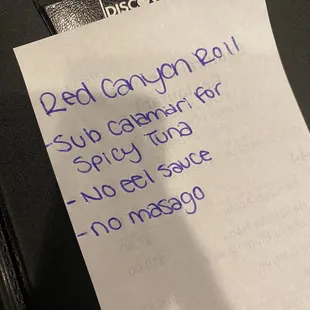 DISCOV
Red Canyon Roll
-Sub calamari for
Spicy Tuna
- No eel sauce
- no masago